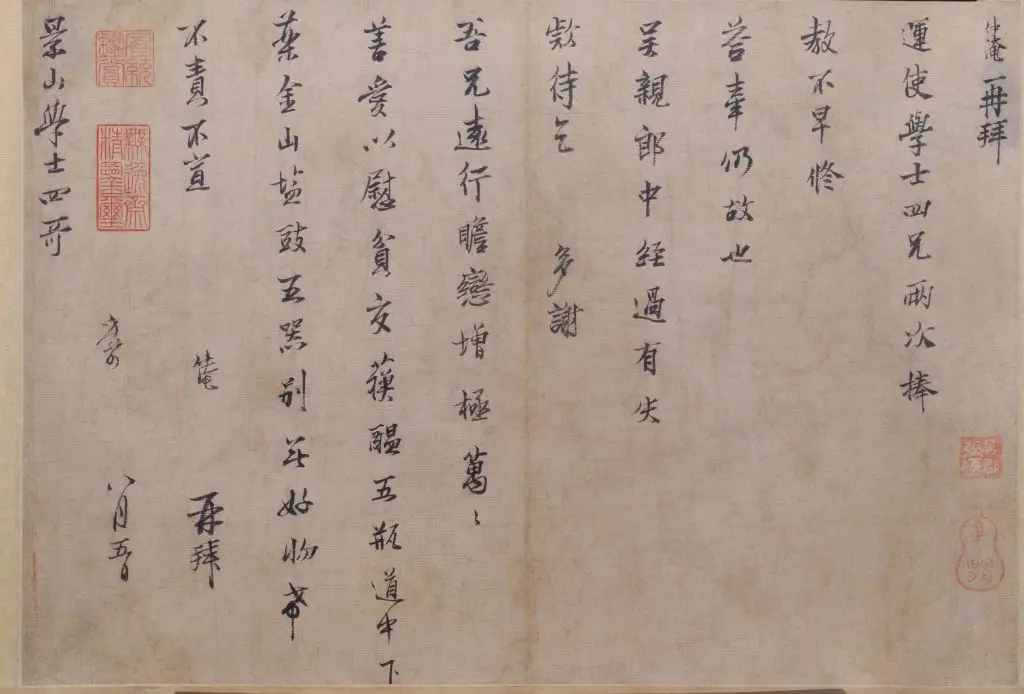 再拜
運使學士四兄兩次捧
教不早修
答牽仍故也
吴親郎中經過有失
款待乞 多謝
吾兄遠行瞻戀增極萬〻
善愛以慰貧交蘓醖五瓶道中下
藥金山塩豉五器別無好物希
不責不宣 再拜
八月五日
景山學士四哥